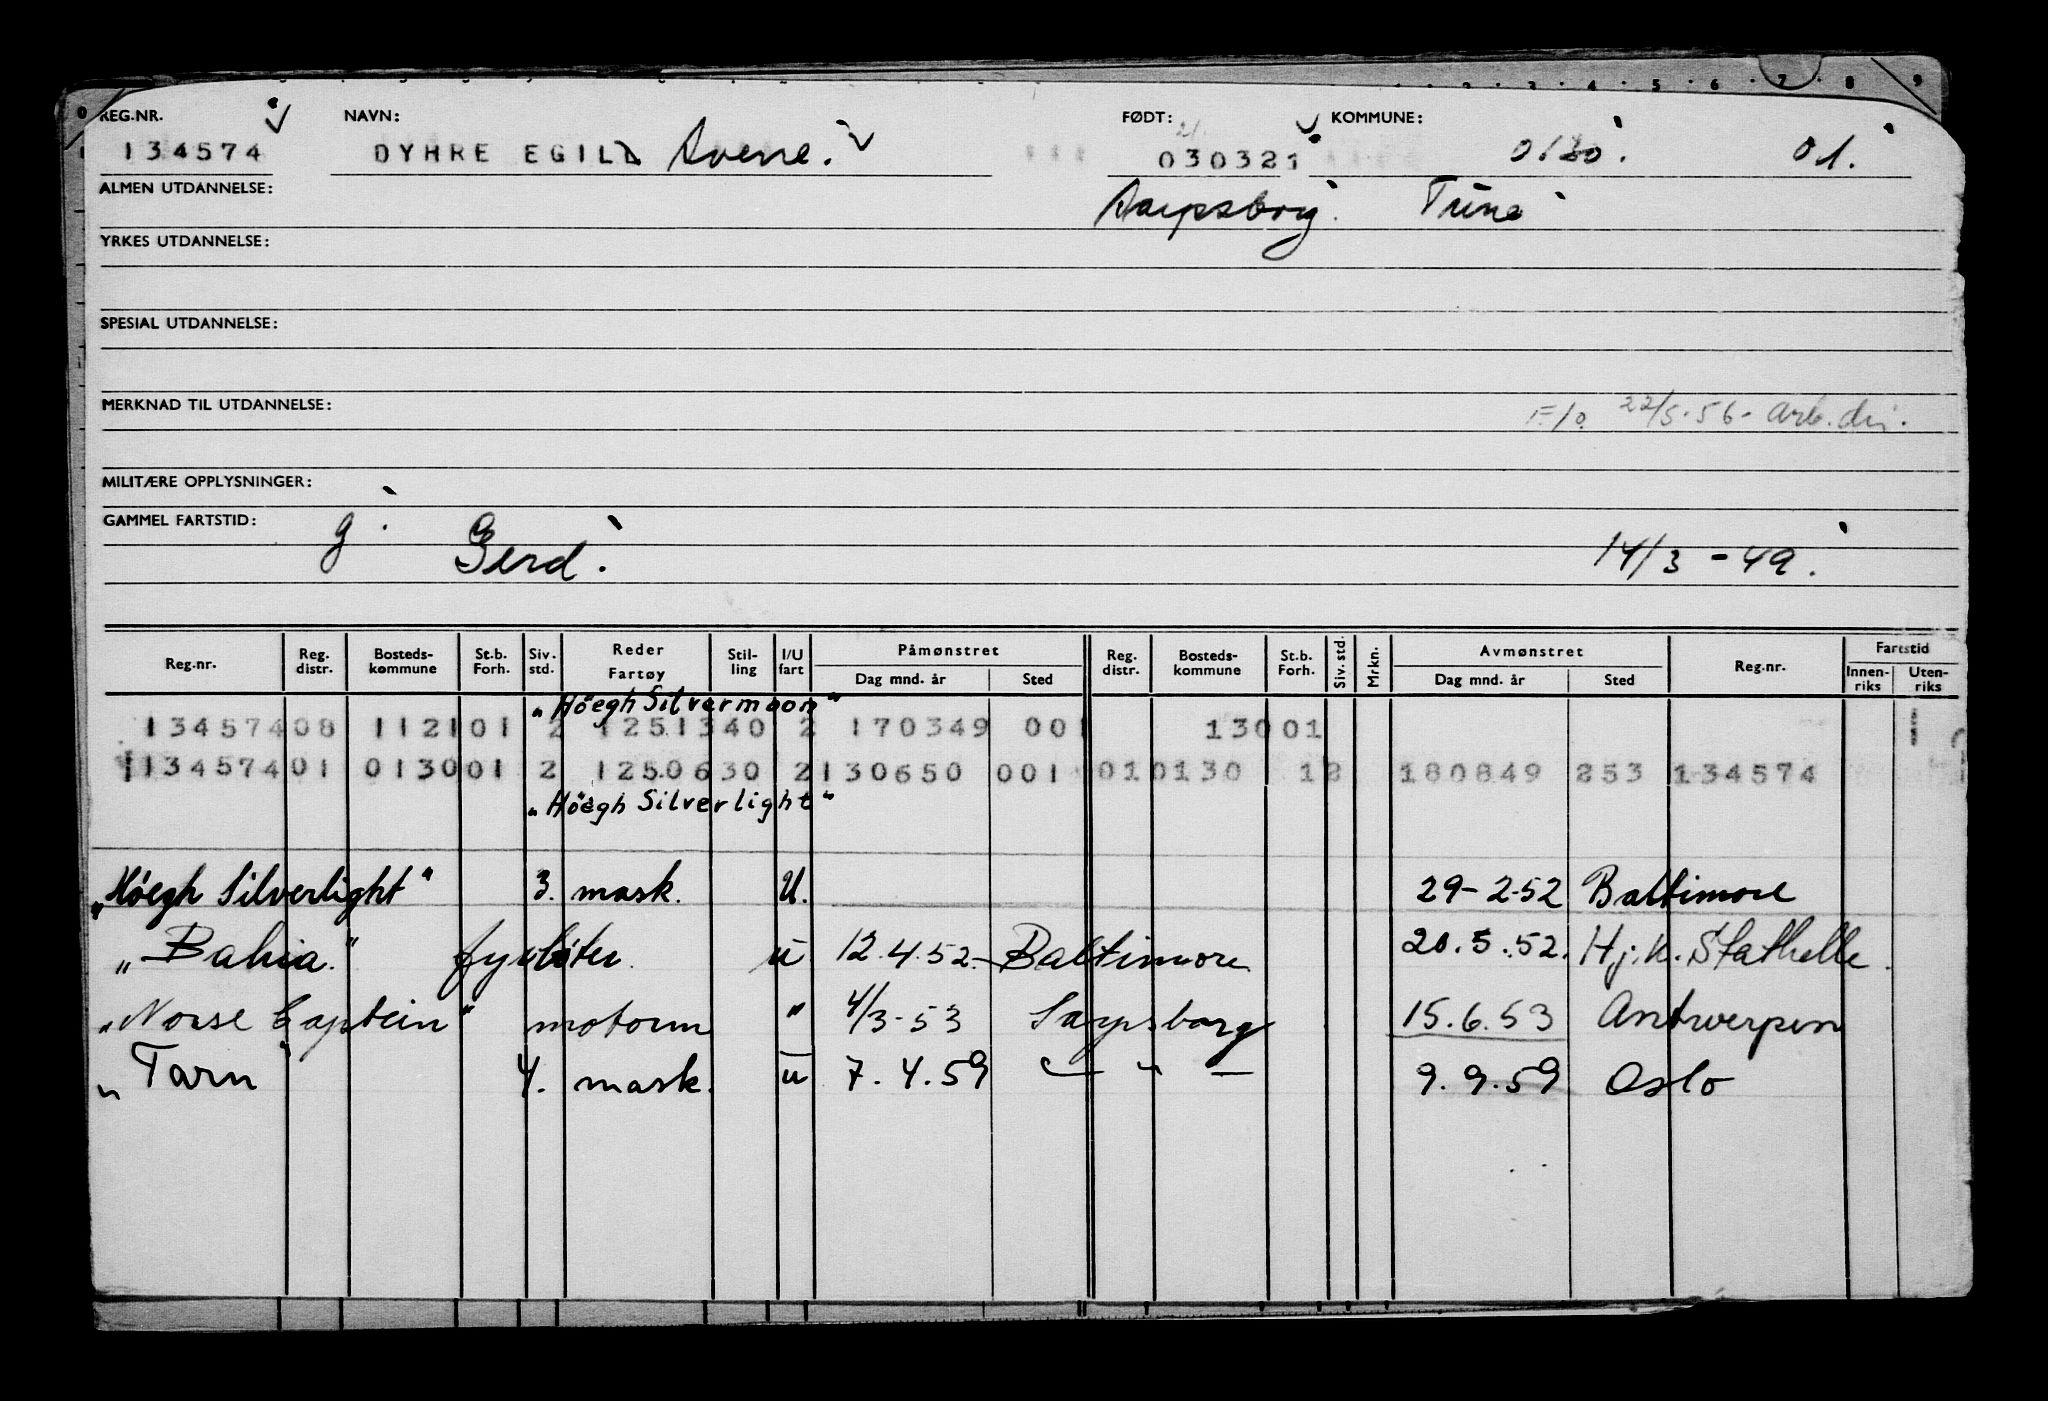 REG.NR. NAVN: FØDT: KOMMUNE:
134574 DYHRE EGIL Sverre. 030321 0130. 01.
ALMEN UTDANNELSE: Sarpsborg. Tune
YRKES UTDANNELSE:
SPESIAL UTDANNELSE:
MERKNAD TIL UTDANNELSE: F/o. 22/5-56- arb.dir.
MILITÆRE OPPLYSNINGER:
GAMMEL FARTSTID: g. Gerd. 14/3 - 49.
Reg.nr. Reg. distr. Bosteds-kommune St.b. Forh. Siv. std. Reder Fartøy Stil-ling I/U fart Påmønstret Dag mnd. år Sted Reg. distr. Bosteds-kommune St.b. Forh. Siv. std. Mrkn. Avmønstret Dag mnd. år Sted Reg.nr. Fartstid Innen-riks Uten-riks
„Höegh Silvermoon"
134574 08 1121 01 2 1251340 2 170349 001 130 01
134574 01 0130 01 2 1250630 2 130650 001 01 0130 1 2 180849 253 134574
„Höegh Silverlight"
„Höegh Silverlight" 3. mask. U. 29-2-52 Baltimore
„Bahia." fyrbøter. u 12.4.52- Baltimore 20.5.52. Hj.k. Stathelle.
„Norse Captein" motorm " 4/3-53 Sarpsborg 15.6.53 Antwerpen
„Tarn" 4. mask. u 7.4.59 — " — 9.9.59 Oslo